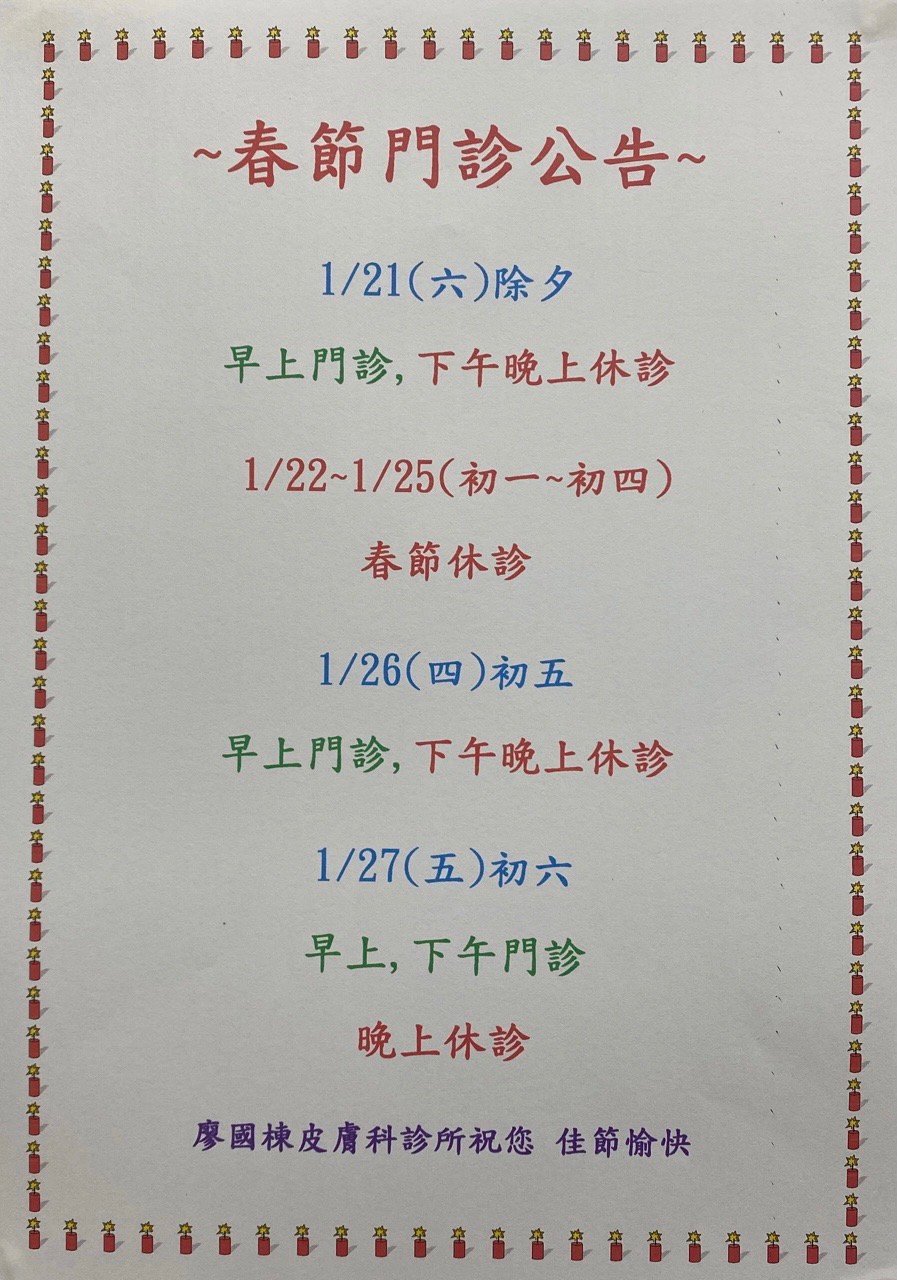 ~春節門診公告~
1/21(六)除夕
早上門診,下午晚上休診
1/22~1/25(初一~初四)
春節休診
1/26(四)初五
早上門診,下午晚上休診
1/27(五)初六
早上,下午門診
晚上休診
廖國棟皮膚科診所祝您 佳節愉快